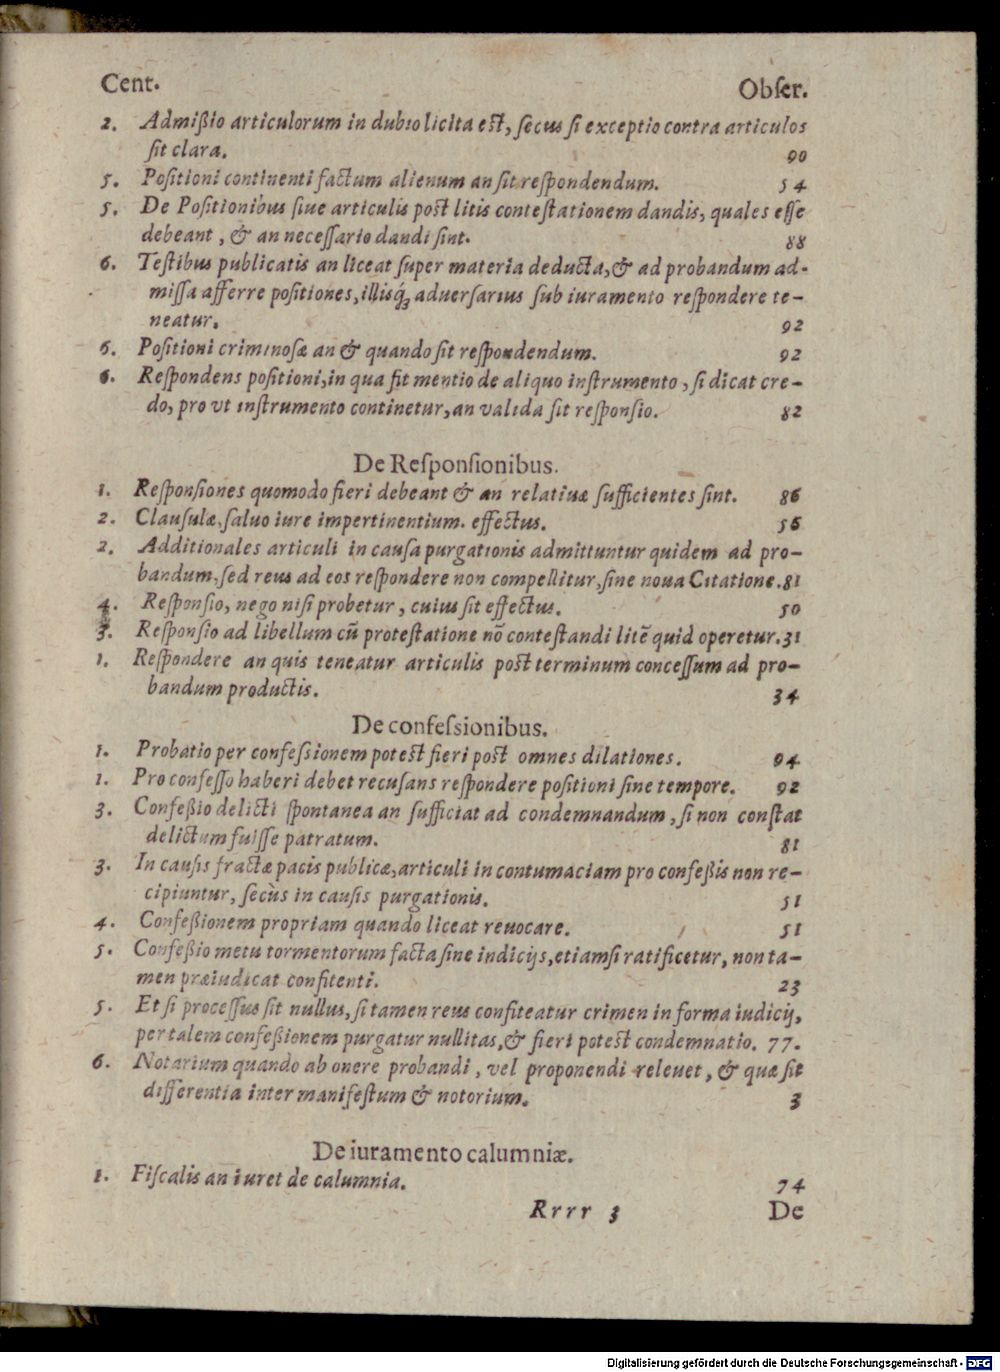 Cent. Obſer.
2. Admißio articulorum in dubio licita est, ſecus ſi exceptio contra articulos
ſit clara. 90
5. Poſitioni continenti factum alienum an ſit reſpondendum. 54
5. De Poſitionibus ſiue articulis post litis conteſtationem dandis, quales eſſe
debeant, & an neceſſario dandi ſint. 88
6. Teſtibus publicatis an liceat ſuper materia deducta, & ad probandum ad-
miſſa afferre poſitiones, illisq́ꝫ aduerſarius ſub iuramento reſpondere te-
neatur. 92
6. Poſitioni criminoſæ an & quando ſit reſpondendum. 92
6. Reſpondens poſitioni, in qua fit mentio de aliquo inſtrumento, ſi dicat cre-
do, pro vt inſtrumento continetur, an valida ſit reſponſio. 82
De Reſponſionibus.
1. Reſponſiones quomodo fieri debeant & an relatiuæ ſufficientes ſint. 86
2. Clauſulæ, ſaluo iure impertinentium. effectus. 56
2. Additionales articuli in cauſa purgationis admittuntur quidem ad pro-
bandum, ſed reus ad eos reſpondere non compellitur, ſine noua Citatione. 81
4. Reſponſio, nego niſi probetur, cuius ſit effectus. 50
3. Reſponſio ad libellum cū proteſtatione nō conteſtandi litē quid operetur. 31
1. Reſpondere an quis teneatur articulis post terminum conceſſum ad pro-
bandum productis. 34
De confeſsionibus.
1. Probatio per confeſsionem potest fieri post omnes dilationes. 94
1. Pro confeſſo haberi debet recuſans reſpondere poſitioni ſine tempore. 92
3. Confeßio delicti ſpontanea an ſufficiat ad condemnandum, ſi non conſtat
delictum fuiſſe patratum. 81
3. In cauſis fractæ pacis publicæ, articuli in contumaciam pro confeßis non re-
cipiuntur, ſecùs in cauſis purgationis. 51
4. Confeßionem propriam quando liceat reuocare. 51
5. Confeßio metu tormentorum facta ſine indicijs, etiamſi ratificetur, non ta-
men præiudicat confitenti. 23
5. Et ſi proceſſus ſit nullus, ſi tamen reus confiteatur crimen in forma iudicij,
per talem confeßionem purgatur nullitas, & fieri potest condemnatio. 77.
6. Notarium quando ab onere probandi, vel proponendi releuet, & quæ ſit
differentia inter manifeſtum & notorium. 3
De iuramento calumniæ.
1. Fiſcalis an iuret de calumnia. 74
Rrrr 3 De
Digitalisierung gefördert durch die Deutsche Forschungsgemeinschaft - DFG